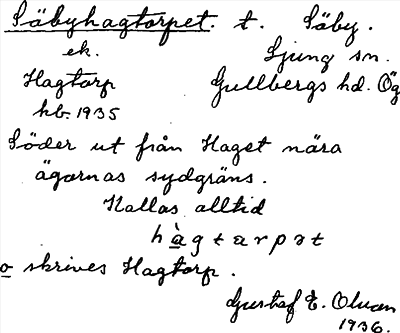 Säbyhagtorpet. t. Säby.
ek. Ljung sn.
Hagtorp Gullbergs hd. Ög
hb. 1935
Söder ut från Haget nära
ägornas sydgräns.
Kallas alltid
hàgtarpət
o skrives Hagtorp.
Gustaf E. Olson
1936.